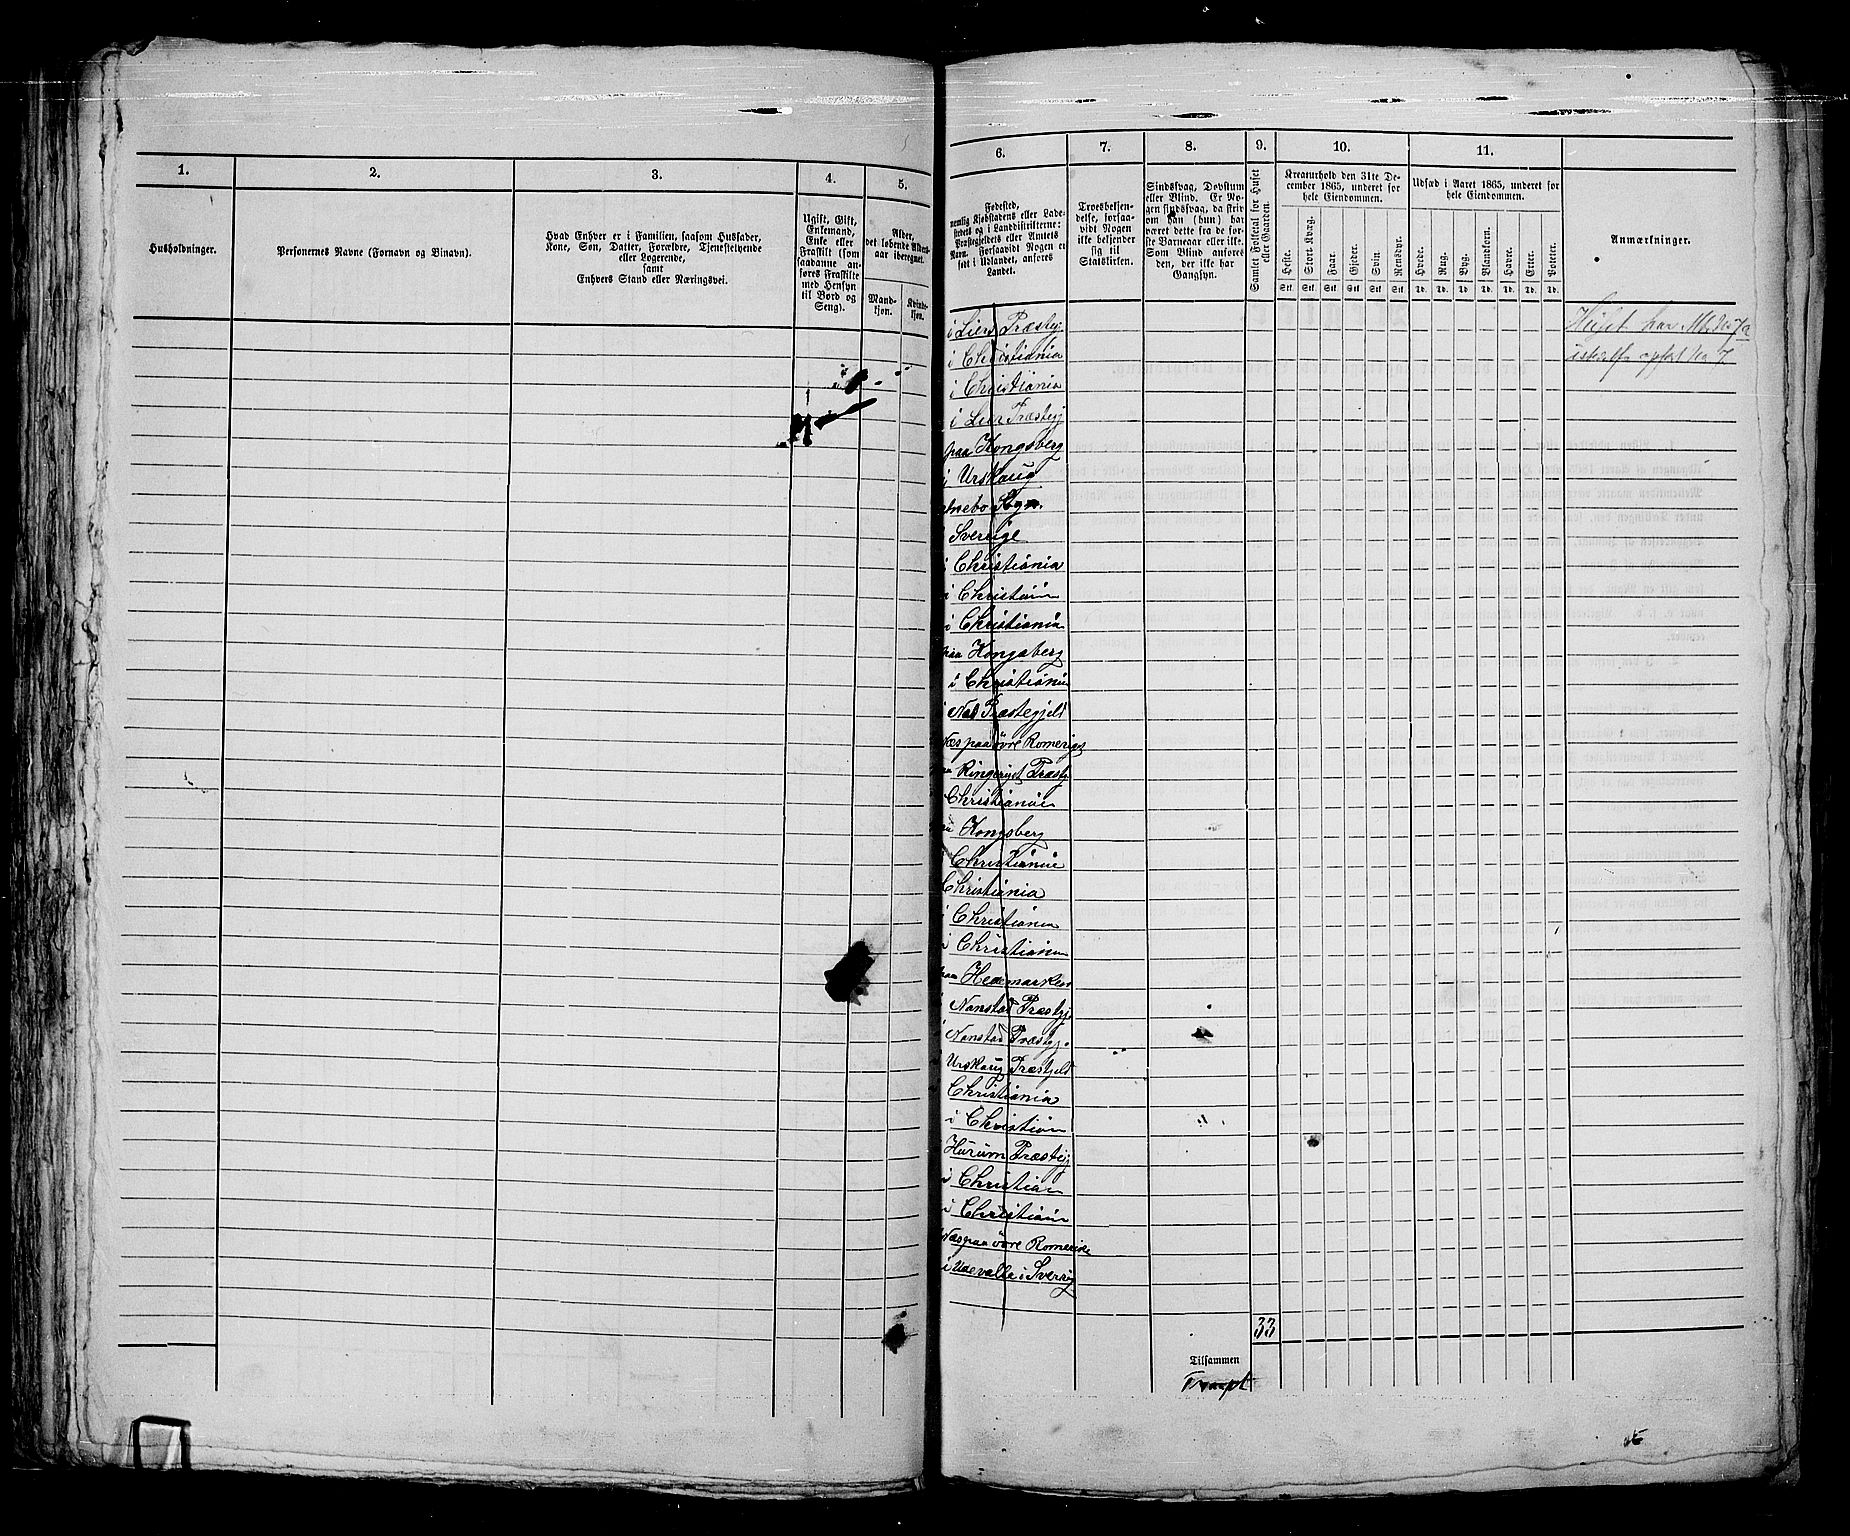 1.
2.
3.
4.
5.
Husholdninger.
Personernes Navne (Fornavn og Binavn).
Hvad Enhver er i Familien, saasom Husfader,
Kone, Søn, Datter, Forældre, Tjenestetyende
eller Logerende,
samt
Enhvers Stand eller Næringsvei.
Ugift, Gift,
Enkemand,
Enke eller
Fraskilt (som
saadanne an-
føres Fraskilte
med Hensyn
til Bord og
Seng).
Alder,
det løbende Alders-
aar iberegnet.
Mand-
kjøn.
Kvinde-
kjøn.
6.
7.
8.
9.
10.
11.
Fødested,
nemlig Kjøbstadens eller Lade-
stedets og i Landdistrikterne:
Præstegjeldets eller Amtets
Navn. Forsaavidt Nogen er
født i Udlandet, anføres
Landet.
Troesbekjen-
delse, forsaa-
vidt Nogen
ikke bekjender
sig til
Statskirken.
Sindssvag, Døvstum
eller Blind. Er No-
gen sindssvag, da skriv
om han (hun) har
været dette fra de før-
ste Barneaar eller ikke.
Som Blind anføres
den, der ikke har
Gangsyn.
Samlet Folketal for Huset
eller Gaarden.
Kreaturhold den 31te De-
cember 1865, underet for
hele Eiendommen.
Heste.
Stort Kvæg.
Faar.
Gjeder.
Svin.
Rensdyr.
Stk. Stk. Stk. Stk. Stk. Stk.
Udsæd i Aaret 1865, underet for
hele Eiendommen.
Hvede.
Rug.
Byg.
Blandkorn.
Havre.
Erter.
Poteter.
Td. Td. Td. Td. Td. Td. Td.
Anmærkninger.
i Liers Præstgj.
Huset har
i Christiania
i Christiania
i Lier Præstegj
paa Kongsberg
i Urskoug
Sogn.
Sverige
i Christiania
i Christian
i Christiania
paa Kongsberg
i Christiania
i Næs Præstegjeld
Næs paa övre Romerige
paa Ringeriget Præstgj
Christiania
paa Kongsberg
Christiania
Christiania
i Christiania
i Christiania
paa Hedemarken
i Nanstad Præstgj.
i Nanstad Præstgj.
Urskoug Præstgjeld
Christiania
i Christian
Hurum Præstegj
i Christian
i Christian
Næs paa övre Romerike
i Udevalle i Sverrig
33
Tilsammen